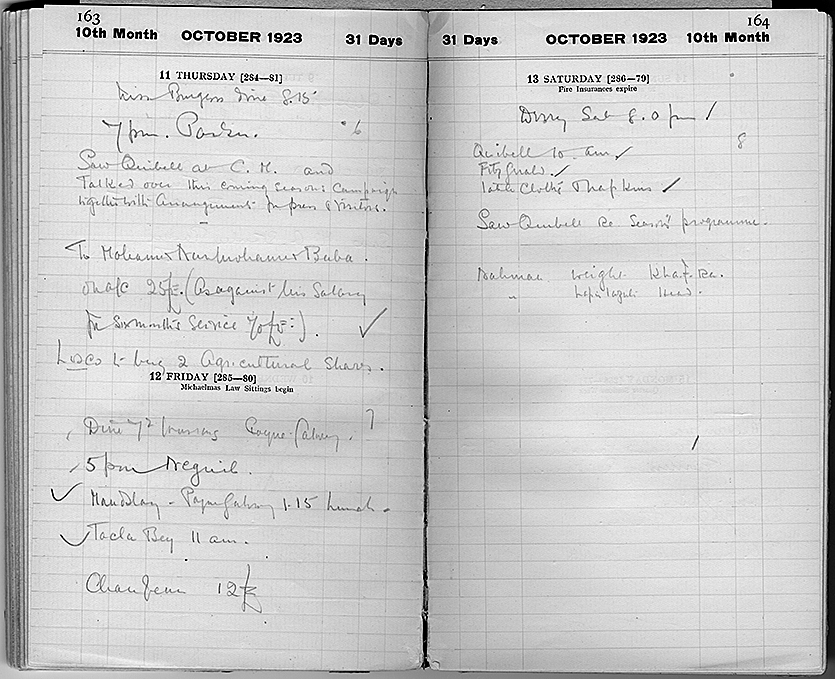 163
10th Month OCTOBER 1923 31 Days
11 THURSDAY [284—81]
Miss Burgess dine 8.15
7 pm.
6
Saw Quibell at C. M. and
talked over this coming seasons campaign
together with arrangements for press & visitors.
To Mohamed Baba.
on a/c 25 (as against his salary
for six months service
to buy 2 Agricultural Shares.
12 FRIDAY [285—80]
Michaelmas Law Sittings begin
Dine
7
5 pm Neguib.
Maudslay - 1-15 lunch -
Tacla Bey 11 am.
12
164
31 Days OCTOBER 1923 10th Month
13 SATURDAY [286—79]
Fire Insurances expire
Sat 8.0 pm
8
Quibell 10 am
FitzGerald.
Table Cloths & Napkins
Saw Quibell re Season's programme.
weight Khaf-Ra.
" Lapis lazuli Head.